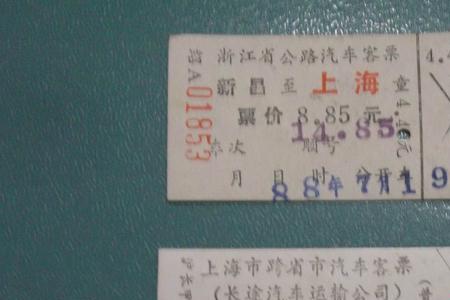 浙江省公路汽车客票
新昌至上海 童
票价8.85元
14.85
车次 顺号
月 日 时 分开车
88年7月19
A 01853
4.4元
4.
上海市跨省市汽车客票
(长途汽车运输公司)